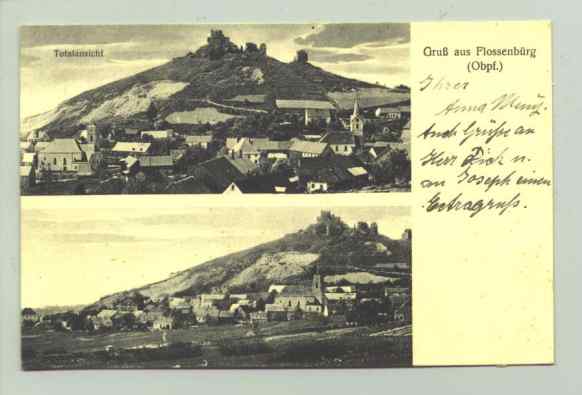 Totalansicht
Gruß aus Flossenbürg
(Obpf.)
Ihrer
Anna
Auch Grüße an
Herr u.
an Joseph einen
Extragruß.